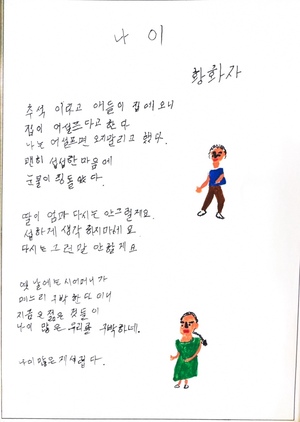 나 이
황화자
추석 이라고 애들이 집에 오니
집이 어설프다고 한다
나는 어설프면 오지말라고 했다.
괜히 섭섭한 마음에
눈물이 핑돌았다.
딸이 엄마 다시는 안그럴게요.
섭하게 생각 하지마세요.
다시는 그런말 안할게요
옛 날에는 시어머니가
며느리 구박 한다더니
지금은 젊은 것들이
나이 많은 우리를 구박하네.
나이많은게 서럽다.